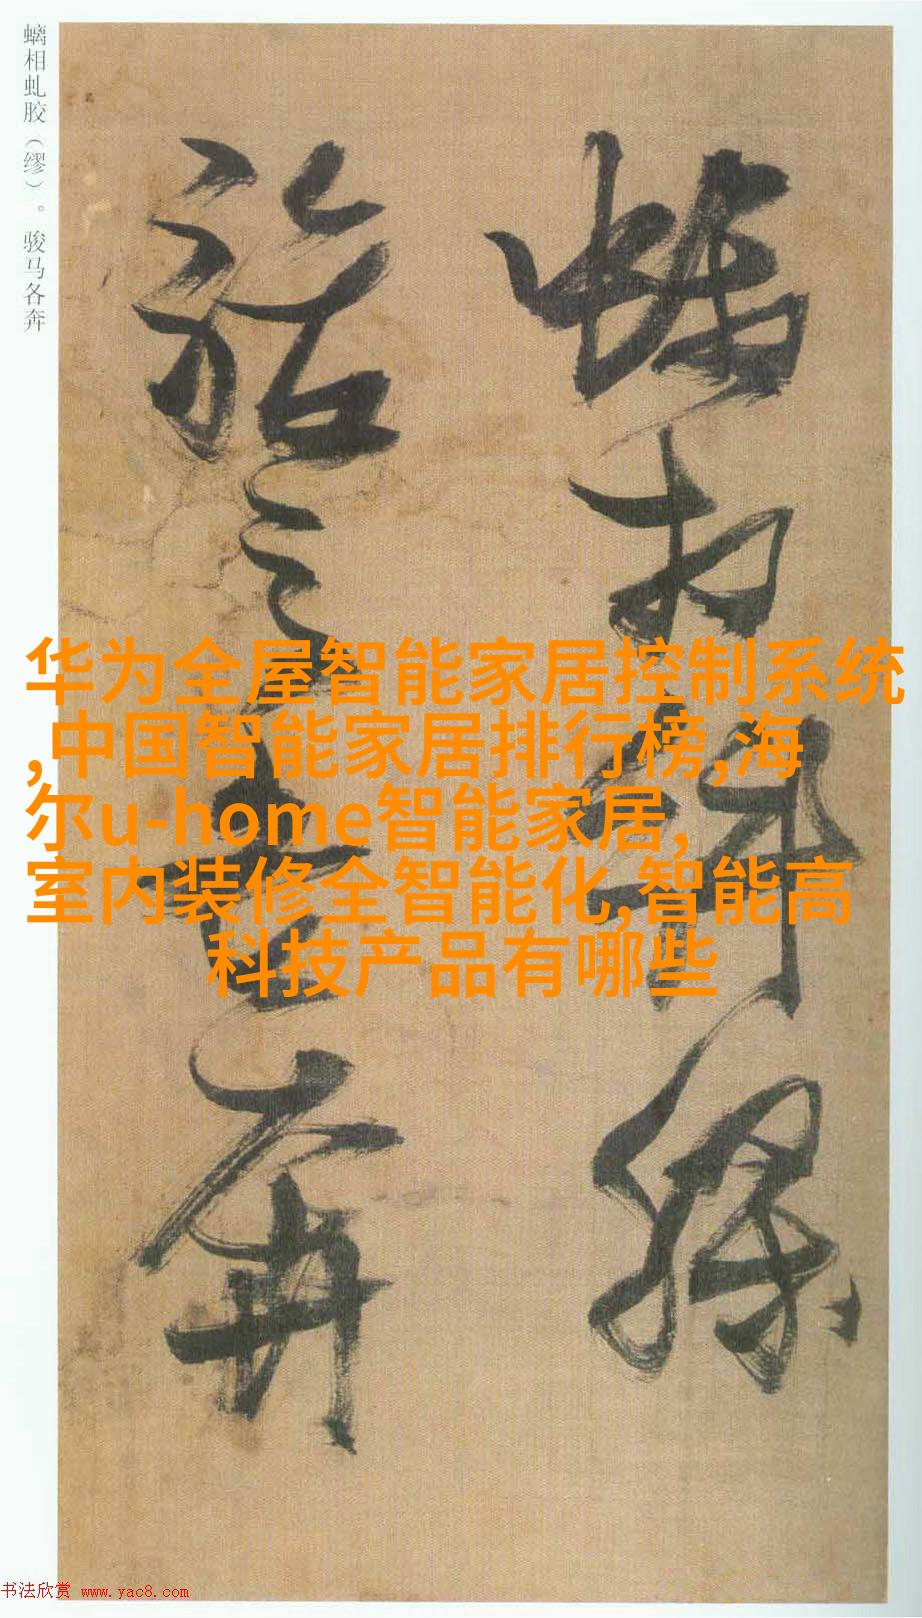 螭相虬胶（缪）。骏马各奔
螭相虬缪
骏马各奔
华为全屋智能家居控制系统
,中国智能家居排行榜,海
尔u-home智能家居,
室内装修全智能化,智能高
科技产品有哪些
书法欣赏 www.yac8.com